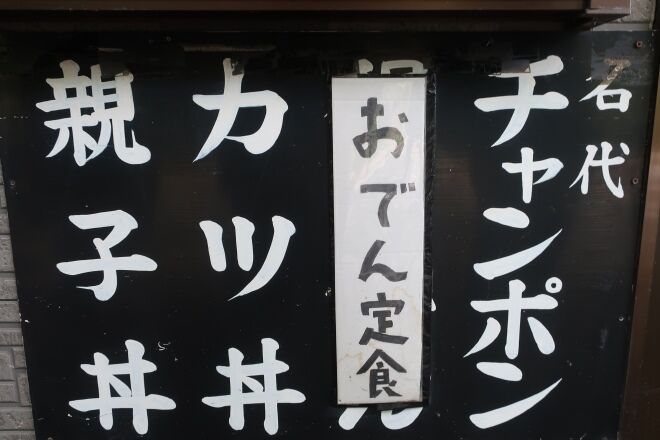 名代
チャンポン
おでん定食
カツ丼
親子丼